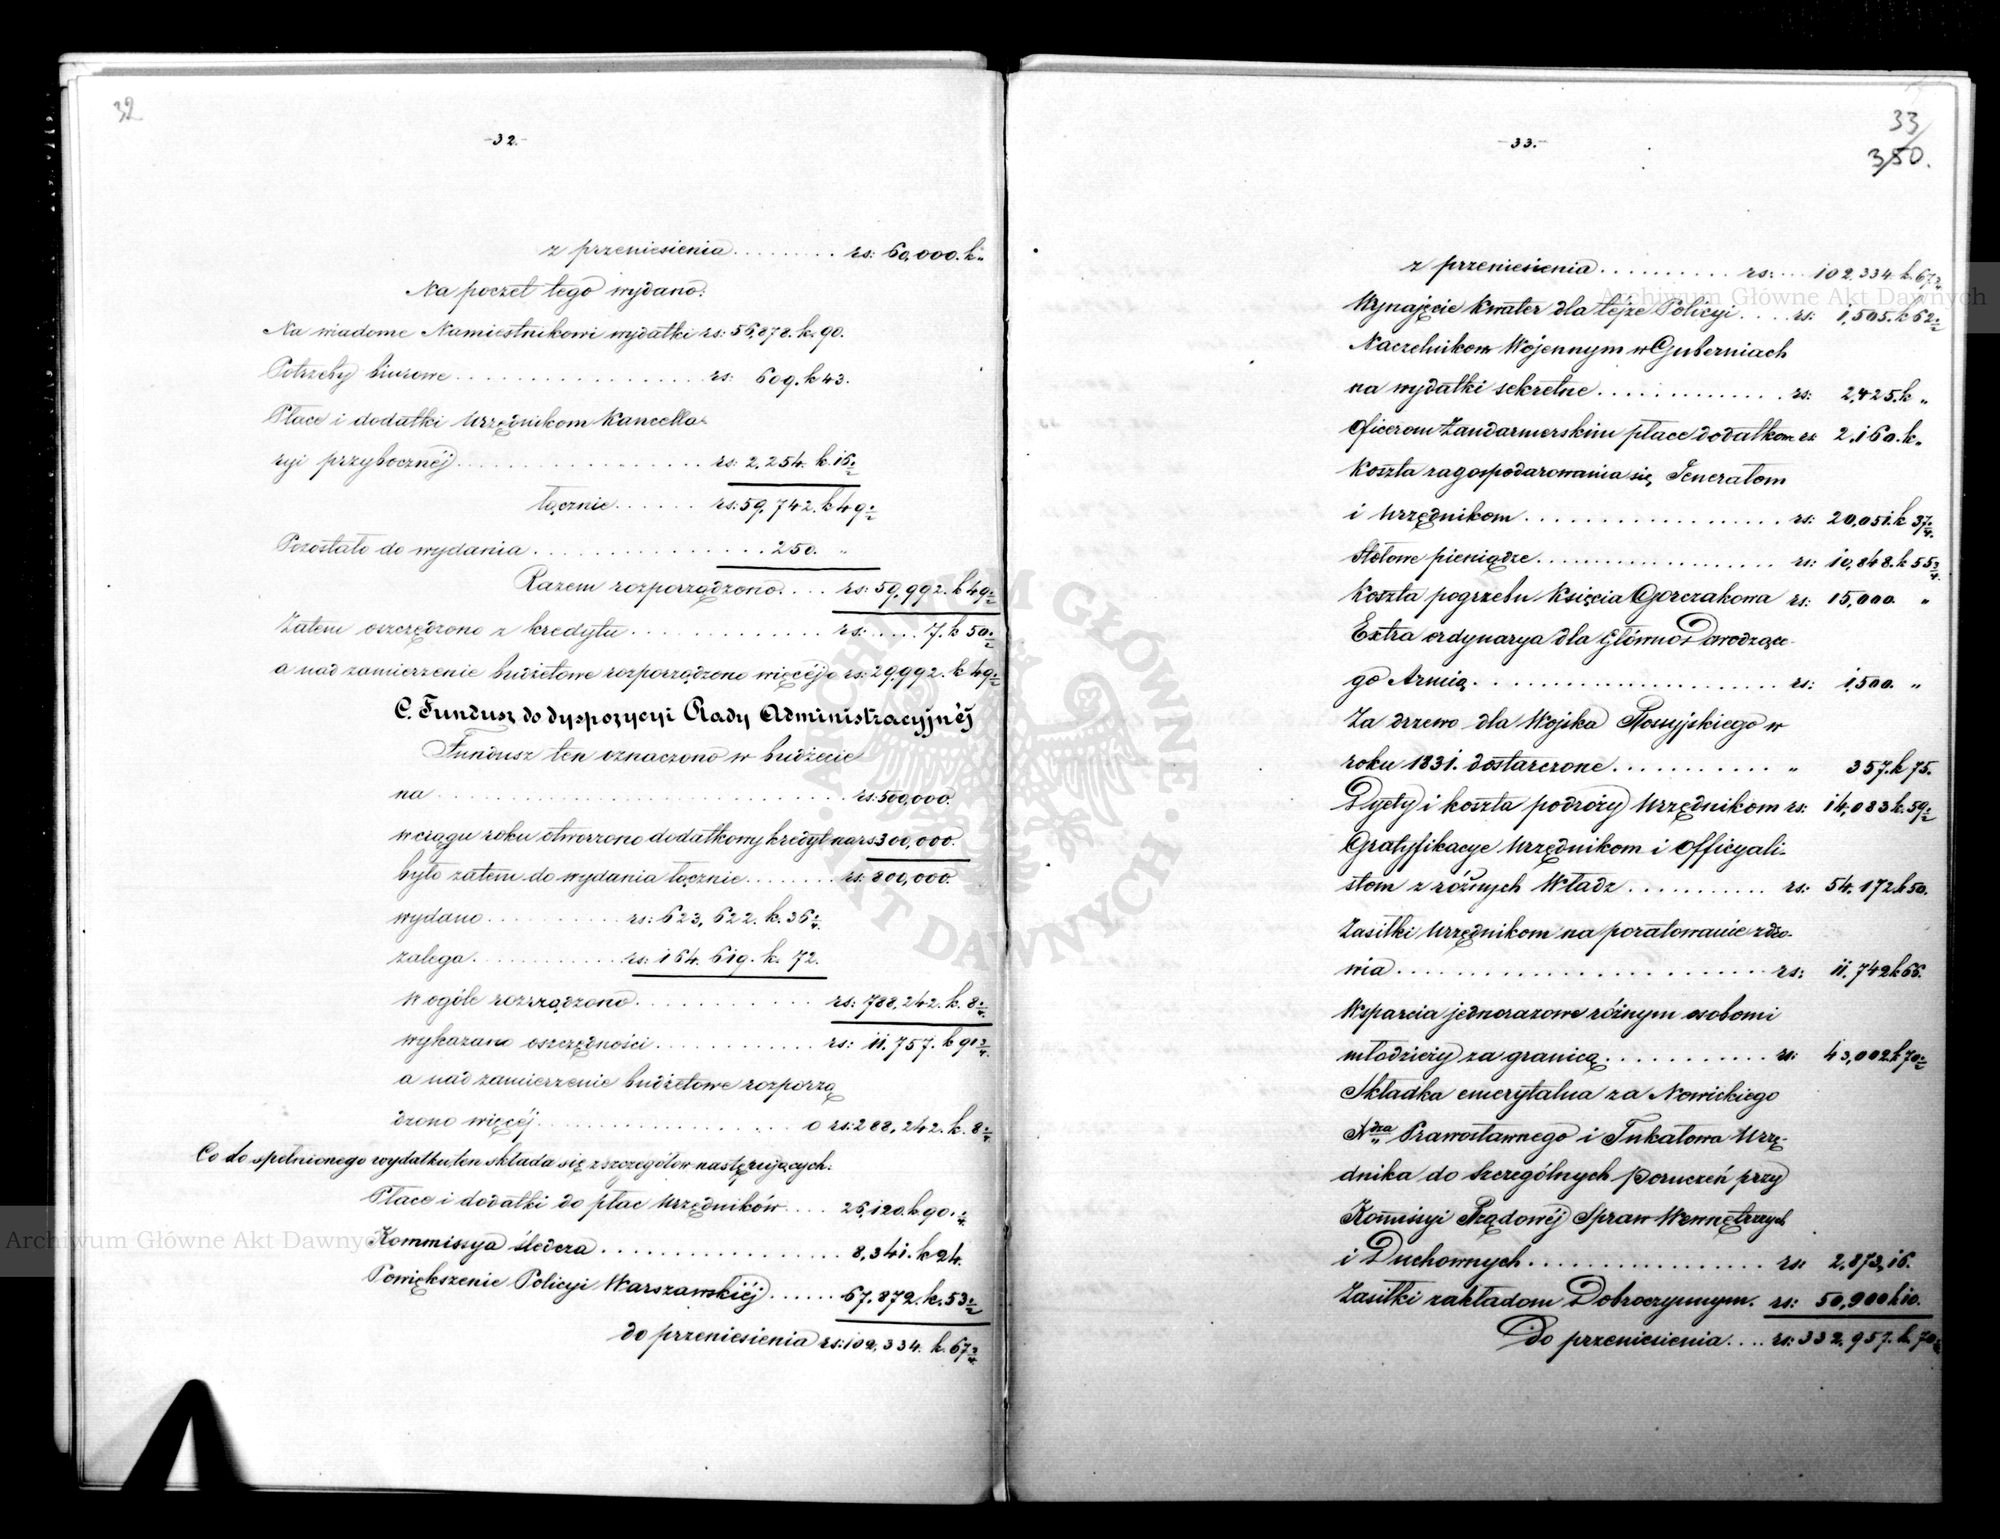 32
-32.-
z przeniesienia . . . . . . . . . rs: 60,000. k „
Na poczet tego wydano:
Na wiadome Namiestnikowi wydatki rs: 56,878. k. 90.
Potrzeby biurowe . . . . . . . . . . rs: 609. k 43.
Płace i dodatki Urzędnikom Kancella-
ryi przybocznéj . . . . . . . . . . rs: 2,254. k. 16 1/2
łącznie . . . . . . rs: 59,742. k 49 1/2
Pozostało do wydania . . . . . . . . . . 250. „
Razem rozporządzono . . . . rs: 59,992. k 49 1/2
Zatem oszczędzono z kredytu . . . . . . . . rs: . . . . 7. k 50 1/2
a nad zamierzenie budżetowe rozporządzono więcéj o rs: 29,992. k 49 1/2
C. Fundusz do dyspozycyi Rady Administracyjnéj
Fundusz ten oznaczono w budżecie
na . . . . . . . . . . . . . . . . rs: 500,000.
w ciągu roku otworzono dodatkowy kredyt na rs 300,000.
było zatem do wydania łącznie . . . . . . . rs: 800,000.
wydano . . . . . . . . . rs: 623,622. k. 36 1/4
zalega . . . . . . . . . rs: 164.619. k. 72.
W ogóle rozrządzono . . . . . . . . . . rs: 788,242. k. 8 1/4
wykazano oszczędności . . . . . . . . . rs: 11.757. k 91 3/4
a nad zamierzenie budżetowe rozporzą
dzono więcéj . . . . . . . . . . . . . o rs: 288,242. k. 8 1/4
Co do spełnionego wydatku, ten składa się z szczegółów następujących:
Płace i dodatki do płac Urzędników . . . . 26,120. k 90. 1/4
Kommissya śledcza . . . . . . . . . . . . 8,341. k 24.
Powiększenie Policyi Warszawskiéj . . . . . . 67.872. k. 53 1/2
do przeniesienia rs: 102,334. k. 67 3/4
33
350.
-33.-
z przeniesienia . . . . . . . . . . rs: . . . 102.334 k. 67 3/4
Wynajęcie kwater dla téjże Policyi . . . . rs: 1,505. k 62 1/2
Naczelnikom Wojennym w Guberniach
na wydatki sekretne . . . . . . . . . . . rs: 2,425. k „
Oficerom Żandarmerskim płace dodatkowe rs 2,160. k „
Koszta zagospodarowania się Jenerałom
i Urzędnikom . . . . . . . . . . . . . . rs: 20,051. k 37 1/4
Stołowe pieniądze . . . . . . . . . . . . . rs: 10,848. k 55 3/4
Koszta pogrzebu Księcia Gorczakowa rs: 15,000. „
Extra ordynarya dla Główno Dowodzące-
go Armią . . . . . . . . . . . . . . . . . rs: 1,500. „
Za drzewo dla Wojska Rossyjskiego w
roku 1831. dostarczone . . . . . . . . . . . „ 357. k 75.
Dyety i koszta podróży Urzędnikom rs: 14,083 k. 59 1/2
Gratyfikacye Urzędnikom i Officyali-
stom z różnych Władz . . . . . . . . . . rs: 54.172 k 50.
Zasiłki Urzędnikom na poratowanie zdro-
wia . . . . . . . . . . . . . . . . . . . . rs: 11.742 k 66.
Wsparcia jednorazowe różnym osobom i
młodzieży za granicą . . . . . . . . . . . rs: 43,002 k 70 1/2
Składka emerytalna za Nowickiego
Prawosławnego i Tukałowa Urzę-
dnika do szczególnych poruczeń przy
Komissyi Rządowéj Spraw Wewnętrznych
i Duchownych . . . . . . . . . . . . . . . rs: 2.873, 16.
Zasiłki zakładom Dobroczynnym. rs: 50,900 k 10.
Do przeniesienia . . . . rs: 332.957. k. 70
Archiwum Główne Akt Dawnych
Archiwum Główne Akt Dawnych
ARCHIWUM GŁÓWNE AKT DAWNYCH